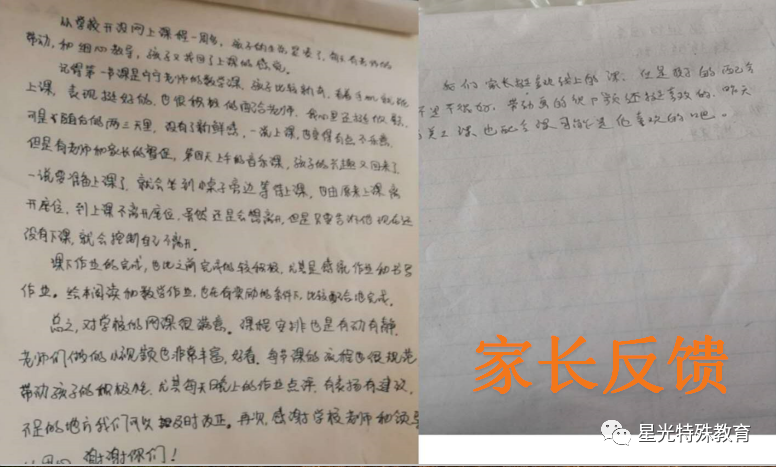 从学校开设网上课程一周多，孩子的
带动，和细心教学，孩子又找回了上课的感觉。
记得第一节课是宁宁老师的数学课，孩子比较新奇，看着手机就能
上课，表现挺好的，也很积极的回答老师，我心里还挺
可是在随后的两三天里，没有了新鲜感，一说上课，也变得有点不乐意
但是有老师和家长的督促，第四天上午的音乐课，孩子的兴趣又回来了
一说要准备上课了，就会坐到桌子旁边等待上课，由原来上课离
开座位，到上课不离开座位，虽然还是会想离开，但是只要告诉他现在还
没有下课，就会控制自己不离开。
课下作业的完成，也比之前完成的较积极，尤其是律动作业和书写
作业。绘本阅读和数学作业，也在有奖励的条件下，比较配合地完成。
总之，对学校的网课很满意。课程安排也是有动有静
老师们做的小视频也非常丰富，好看。每节课的流程也很规范
带动孩子的积极性，尤其每天晚上的作业点评，有表扬有建议，
不足的地方我们可以及时改正。再次感谢学校老师和领导
谢谢你们！
我们家长挺喜欢线上的课，但是孩子的配合
不是很好，带动画的视频还挺喜欢的，昨天
上课也配合课可能是他喜欢的吧。
家长反馈
星光特殊教育